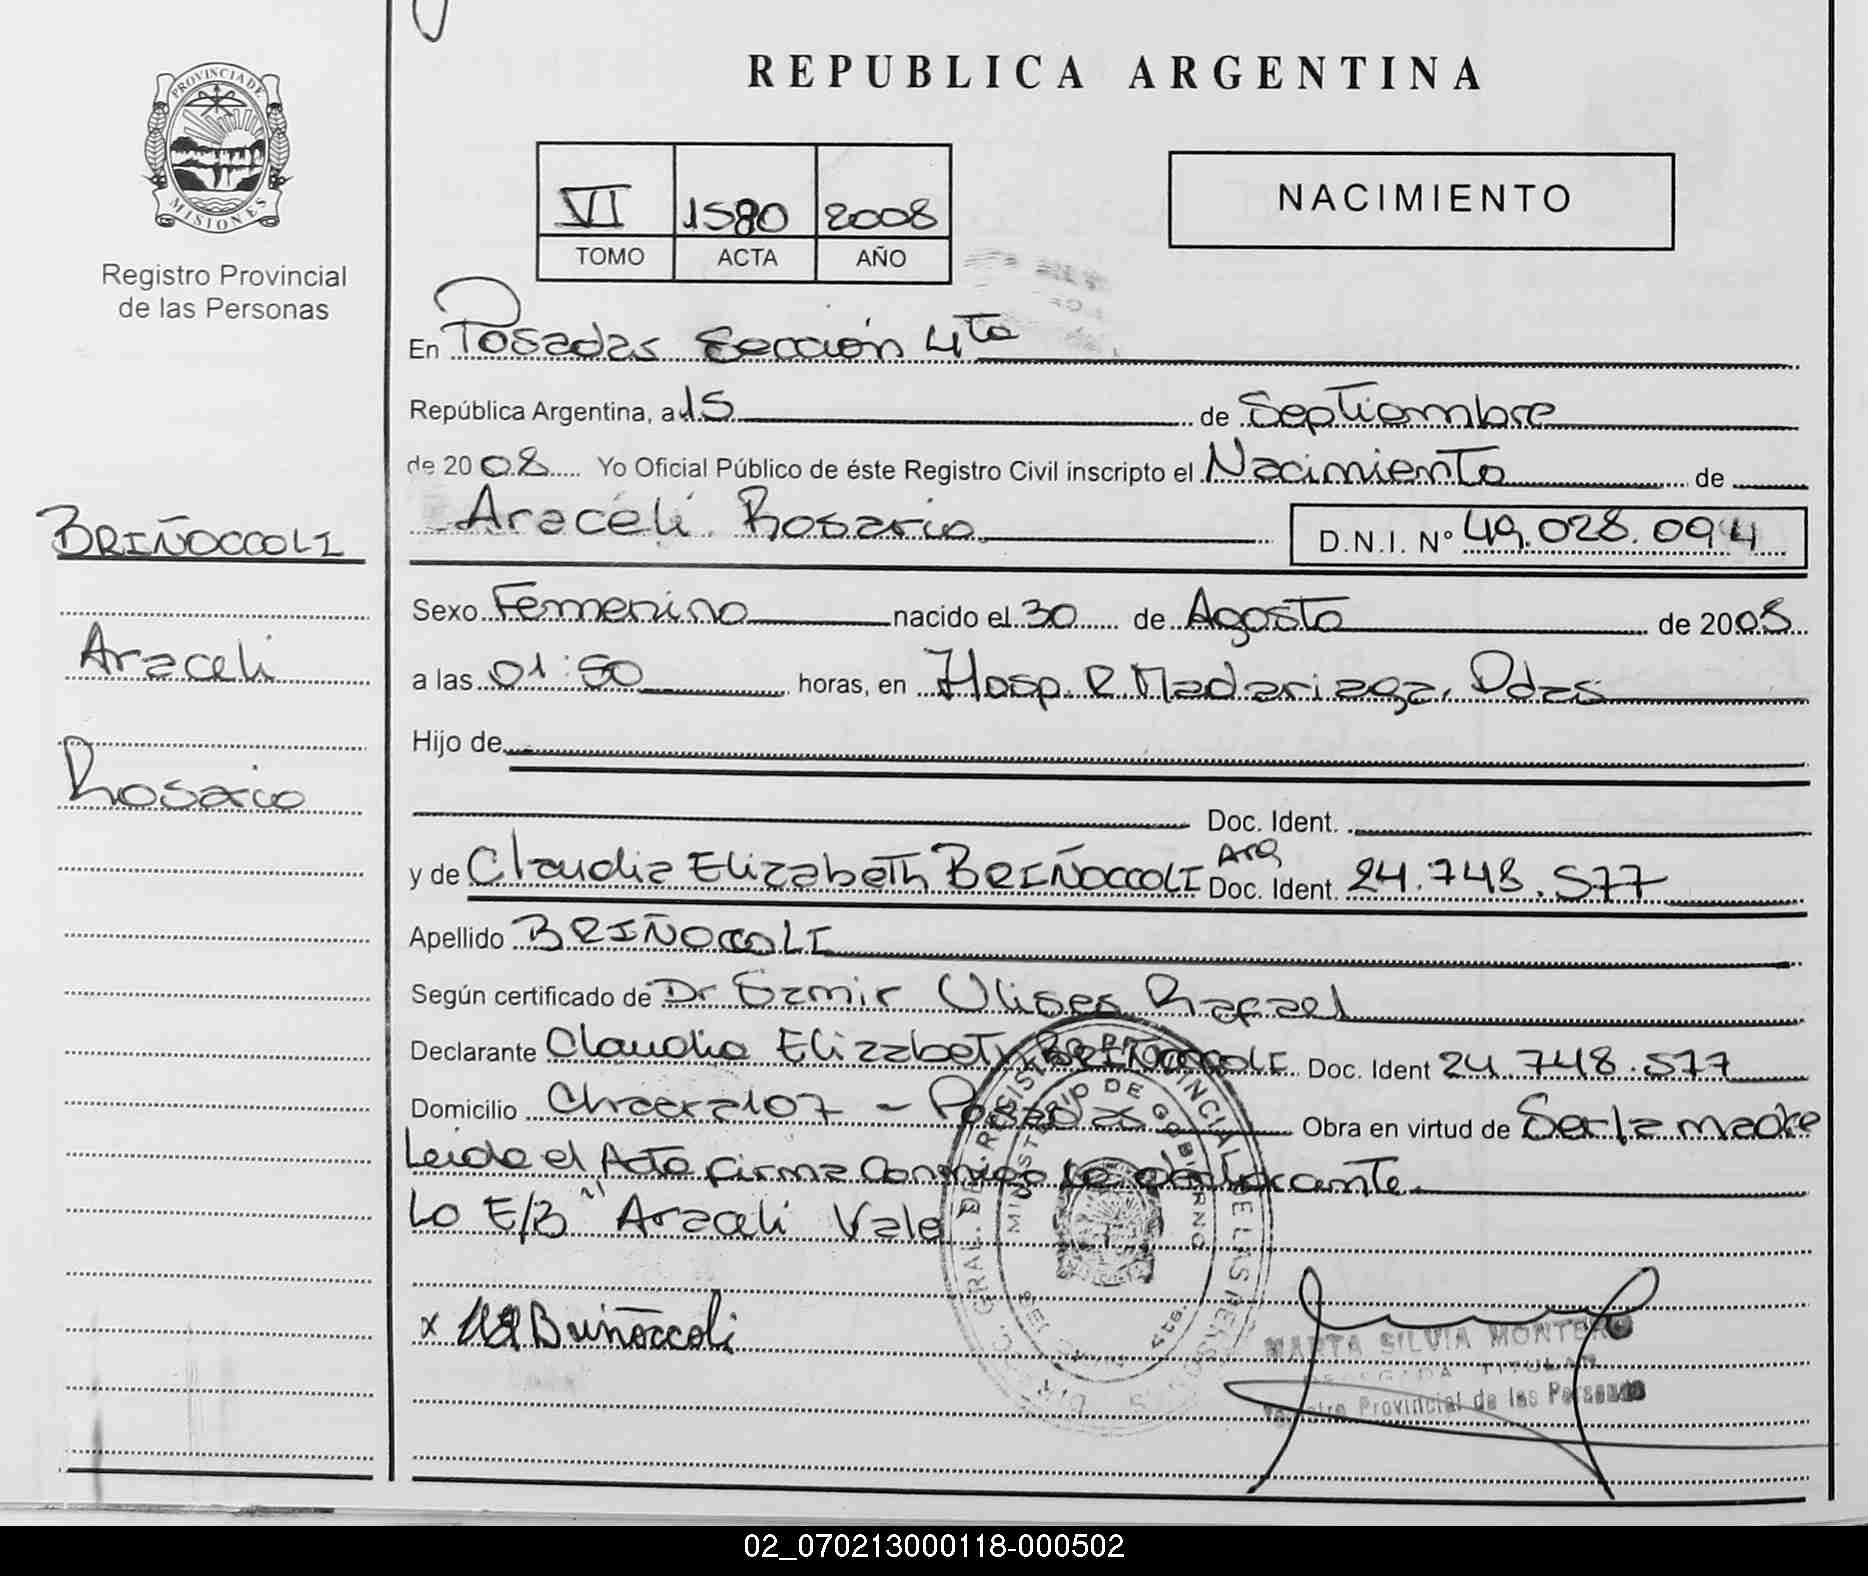 REPUBLICA ARGENTINA
PROVINCIA DE
MISIONES
Registro Provincial
de las Personas
VI 1580 2008
TOMO ACTA AÑO
NACIMIENTO
En Posadas Sección 4ta
República Argentina, a 15 de Septiembre
de 2008 Yo Oficial Público de éste Registro Civil inscripto el Nacimiento de
Araceli Rosario D.N.I. N° 49.028.094
BRIÑOCCOLI
Araceli
Rosario
Sexo Femenino nacido el 30 de Agosto de 2008
a las 01:50 horas, en Hosp. R Madariaga, Pdas
Hijo de
Doc. Ident.
y de Claudia Elizabeth BRIÑOCCOLI Arg Doc. Ident. 24.748.577
Apellido BRIÑOCCOLI
Según certificado de Dr Samir Ulises Rafael
Declarante Claudia Elizabeth BRIÑOCCOLI Doc. Ident 24.748.577
Domicilio Chacra 107 - Posadas Obra en virtud de Ser la madre
Leida el Acta firma conmigo la declarante.
Lo E/B "Araceli Vale
x Briñoccoli
MINISTERIO DE GOBIERNO
MARTA SILVIA MONTERO
DELEGADA TITULAR
Registro Provincial de las Personas
02_070213000118-000502